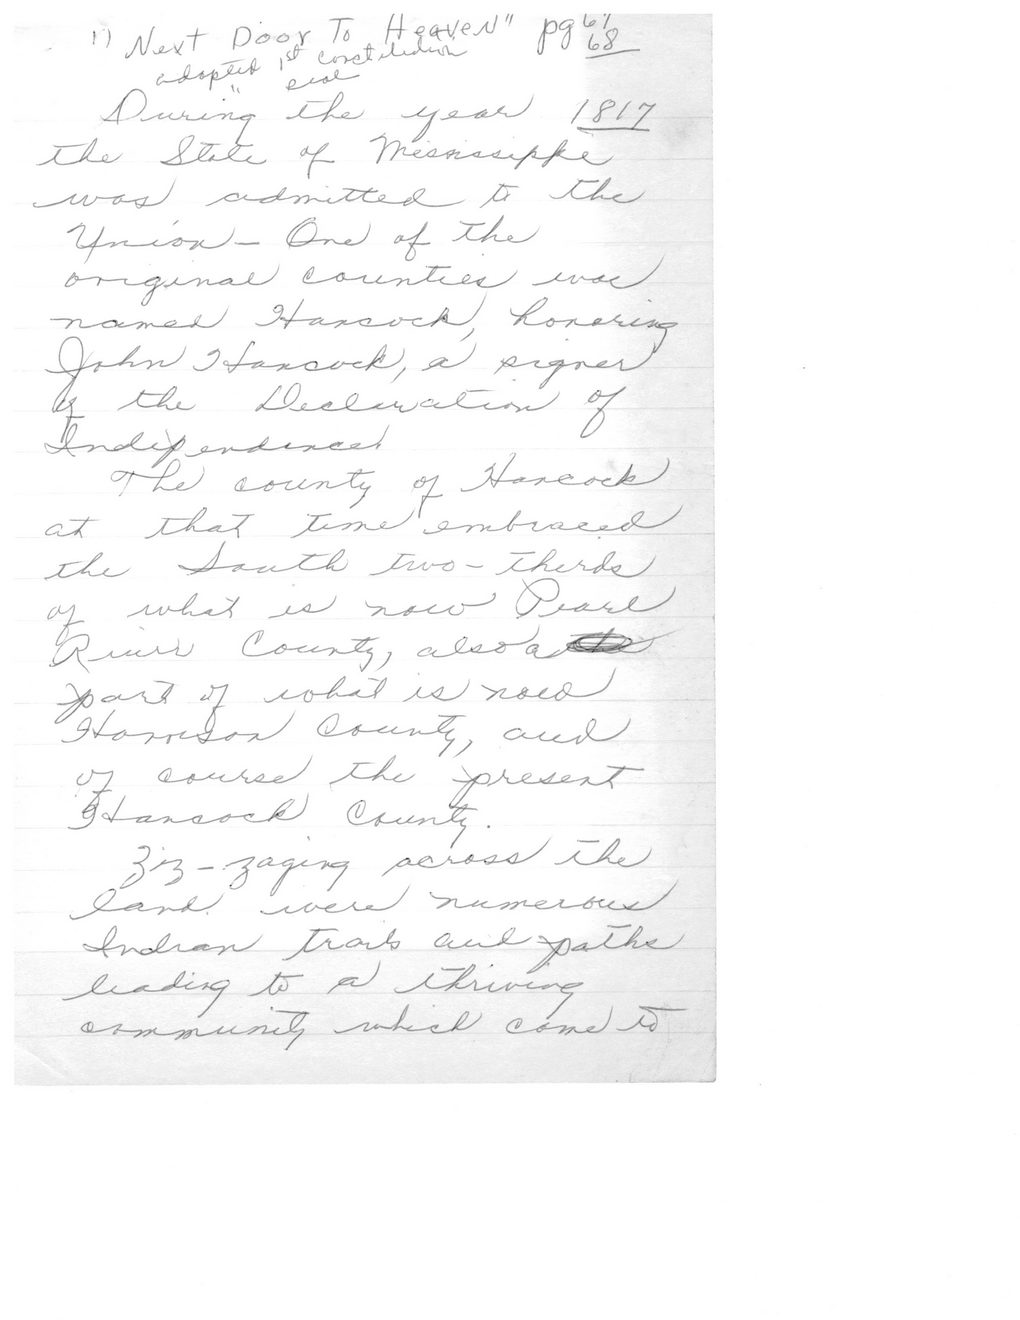 1) Next Door To Heaven" pg 67
68
adopted 1st constitution
" seal
During the year 1817
the State of Mississippi
was admitted to the
Union - One of the
original counties was
named Hancock, honoring
John Hancock, a signer
of the Declaration of
Independence.
The county of Hancock
at that time embraced
the South two-thirds
of what is now Pearl
River County, also a
part of what is now
Harrison County, and
of course the present
Hancock County.
Ziz-zaging across the
land were numerous
Indian trails and paths
leading to a thriving
community which came to